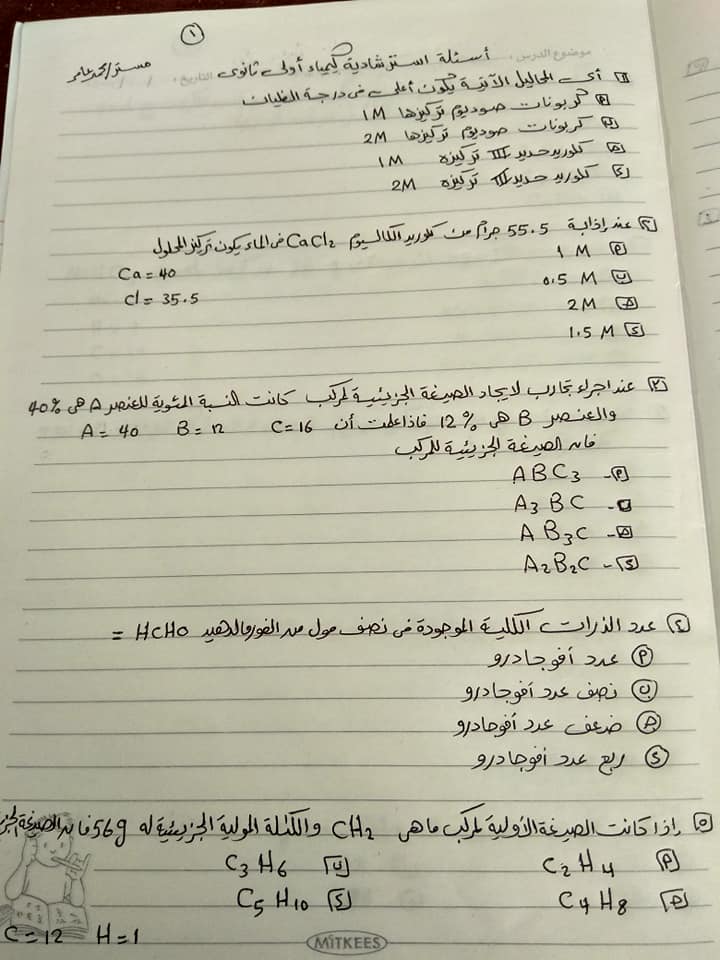 ١
موضوع الدرس:
التاريخ:
أسئلة استرشادية كيمياء أولى ثانوى
مستر/محمد عامر
١ أى المحاليل الآتية يكون أعلى فى درجة الغليان
أ كربونات صوديوم تركيزها 1M
ب كربونات صوديوم تركيزها 2M
ج كلوريد حديد III تركيزه 1M
د كلوريد حديد III تركيزه 2M
٢ عند إذابة 55.5 جرام من كلوريد الكالسيوم CaCl2 فى الماء يكون تركيز المحلول
أ 1 M
Ca = 40
ب 0.5 M
Cl = 35.5
ج 2M
د 1.5 M
٣ عند اجراء تجارب لايجاد الصيغة الجزيئية لمركب كانت النسبة المئوية للعنصر A هى 40%
والعنصر B هى 12% فاذا علمت أن A = 40 B = 12 C = 16
فان الصيغة الجزيئية للمركب
أ- ABC3
ب- A3BC
ج- AB3C
د- A2B2C
٤ عدد الذرات الكلية الموجودة فى نصف مول من الفورمالدهيد HCHO =
أ عدد أفوجادرو
ب نصف عدد أفوجادرو
ج ضعف عدد أفوجادرو
د ربع عدد أفوجادرو
٥ إذا كانت الصيغة الأولية لمركب ما هى CH2 والكتلة المولية الجزيئية له 56g فان الصيغة
أ C2H4 ب C3H6
ج C4H8 د C5H10
C=12 H=1
MiTKEES